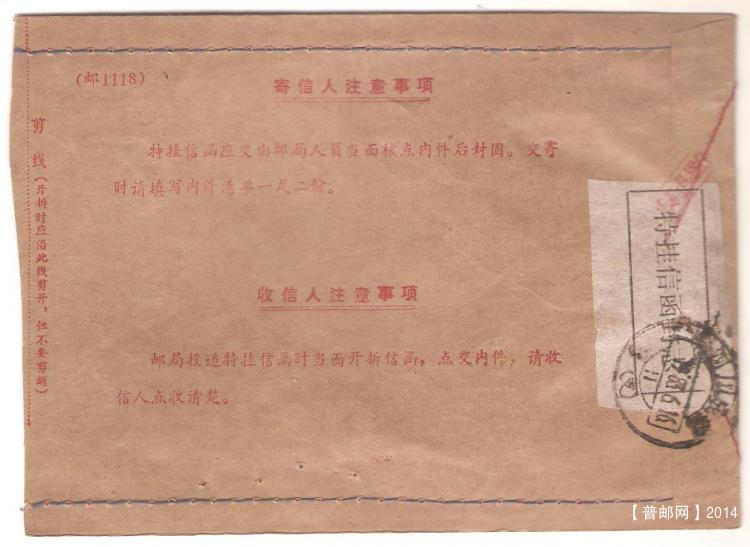 (邮1118)
寄信人注意事项
特挂信函应交由邮局人員当面核点内件后封固。交寄
时请填写内件清单一式二份。
收信人注意事项
邮局投递特挂信函时当面开拆信函，点交内件，请收
信人点收清楚。
剪 线(开拆时应沿此线剪开，但不要剪断)
特挂信函
【普邮网】2014